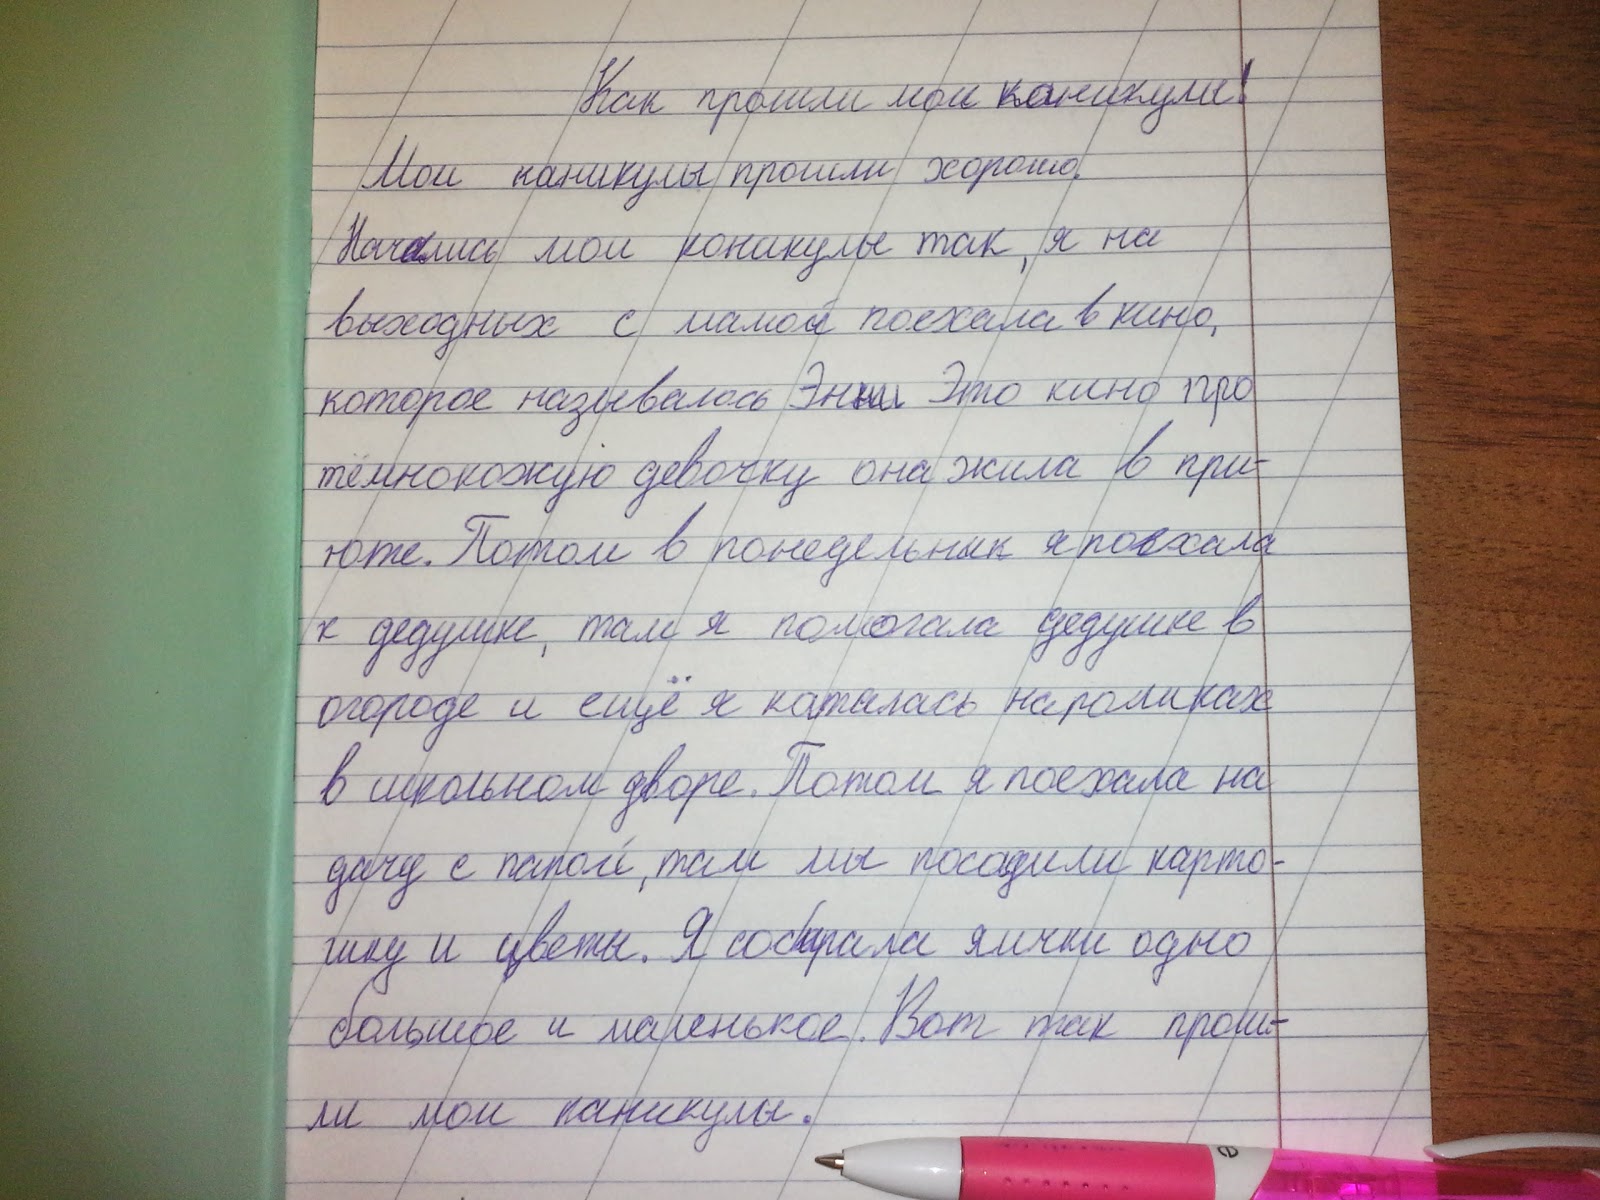 Как прошли мои каникулы!
Мои каникулы прошли хорошо.
Начались мои коникулы так, я на
выходных с мамой поехала в кино,
которое называлось Энни Это кино про
тёмнокожую девочку она жила в при-
юте. Потом в понедельник я поехала
к дедушке, там я помогала дедушке в
огороде и ещё я каталась на роликах
в школьном дворе. Потом я поехала на
дачу с папой, там мы посадили карто-
шку и цветы. Я собирала яички одно
большое и маленькое. Вот так прош-
ли мои каникулы.
e